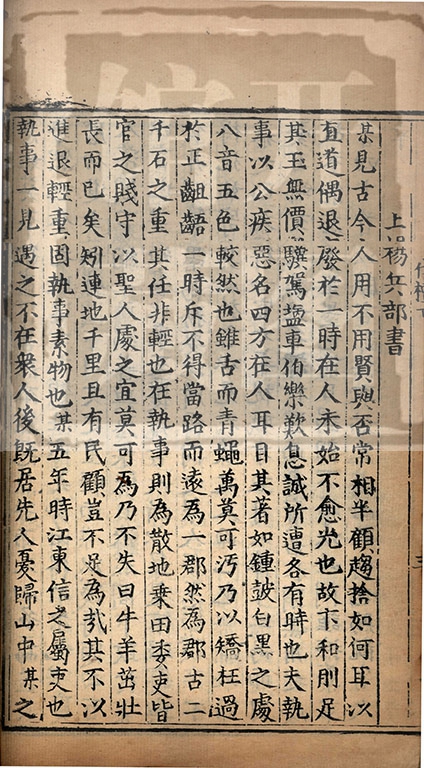 上楊兵部書
某見古今人用不用賢與否常相半顧趨捨如何耳以
直道偶退廢於一時在人未始不愈光也故卞和刖足
其玉無價驥駕塩車伯樂歎息誠所遭各有時也夫執
事以公疾惡名四方在人耳目其著如鍾鼓白黒之處
八音五色較然也雖舌而青蠅萬莫可汚乃以矯枉過
於正齟齬一時斥不得當路而逺為一郡然為郡古二
千石之重其任非輕也在執事則為散地乗田委吏皆
官之賤守以聖人處之宜莫可為乃不失曰牛羊茁壯
長而已矣矧連地千里且有民顧豈不足為㢤其不以
進退輕重固執事素物也某五年時江東信之屬吏也
執事一見遇之不在衆人後旣居先人憂歸山中某之